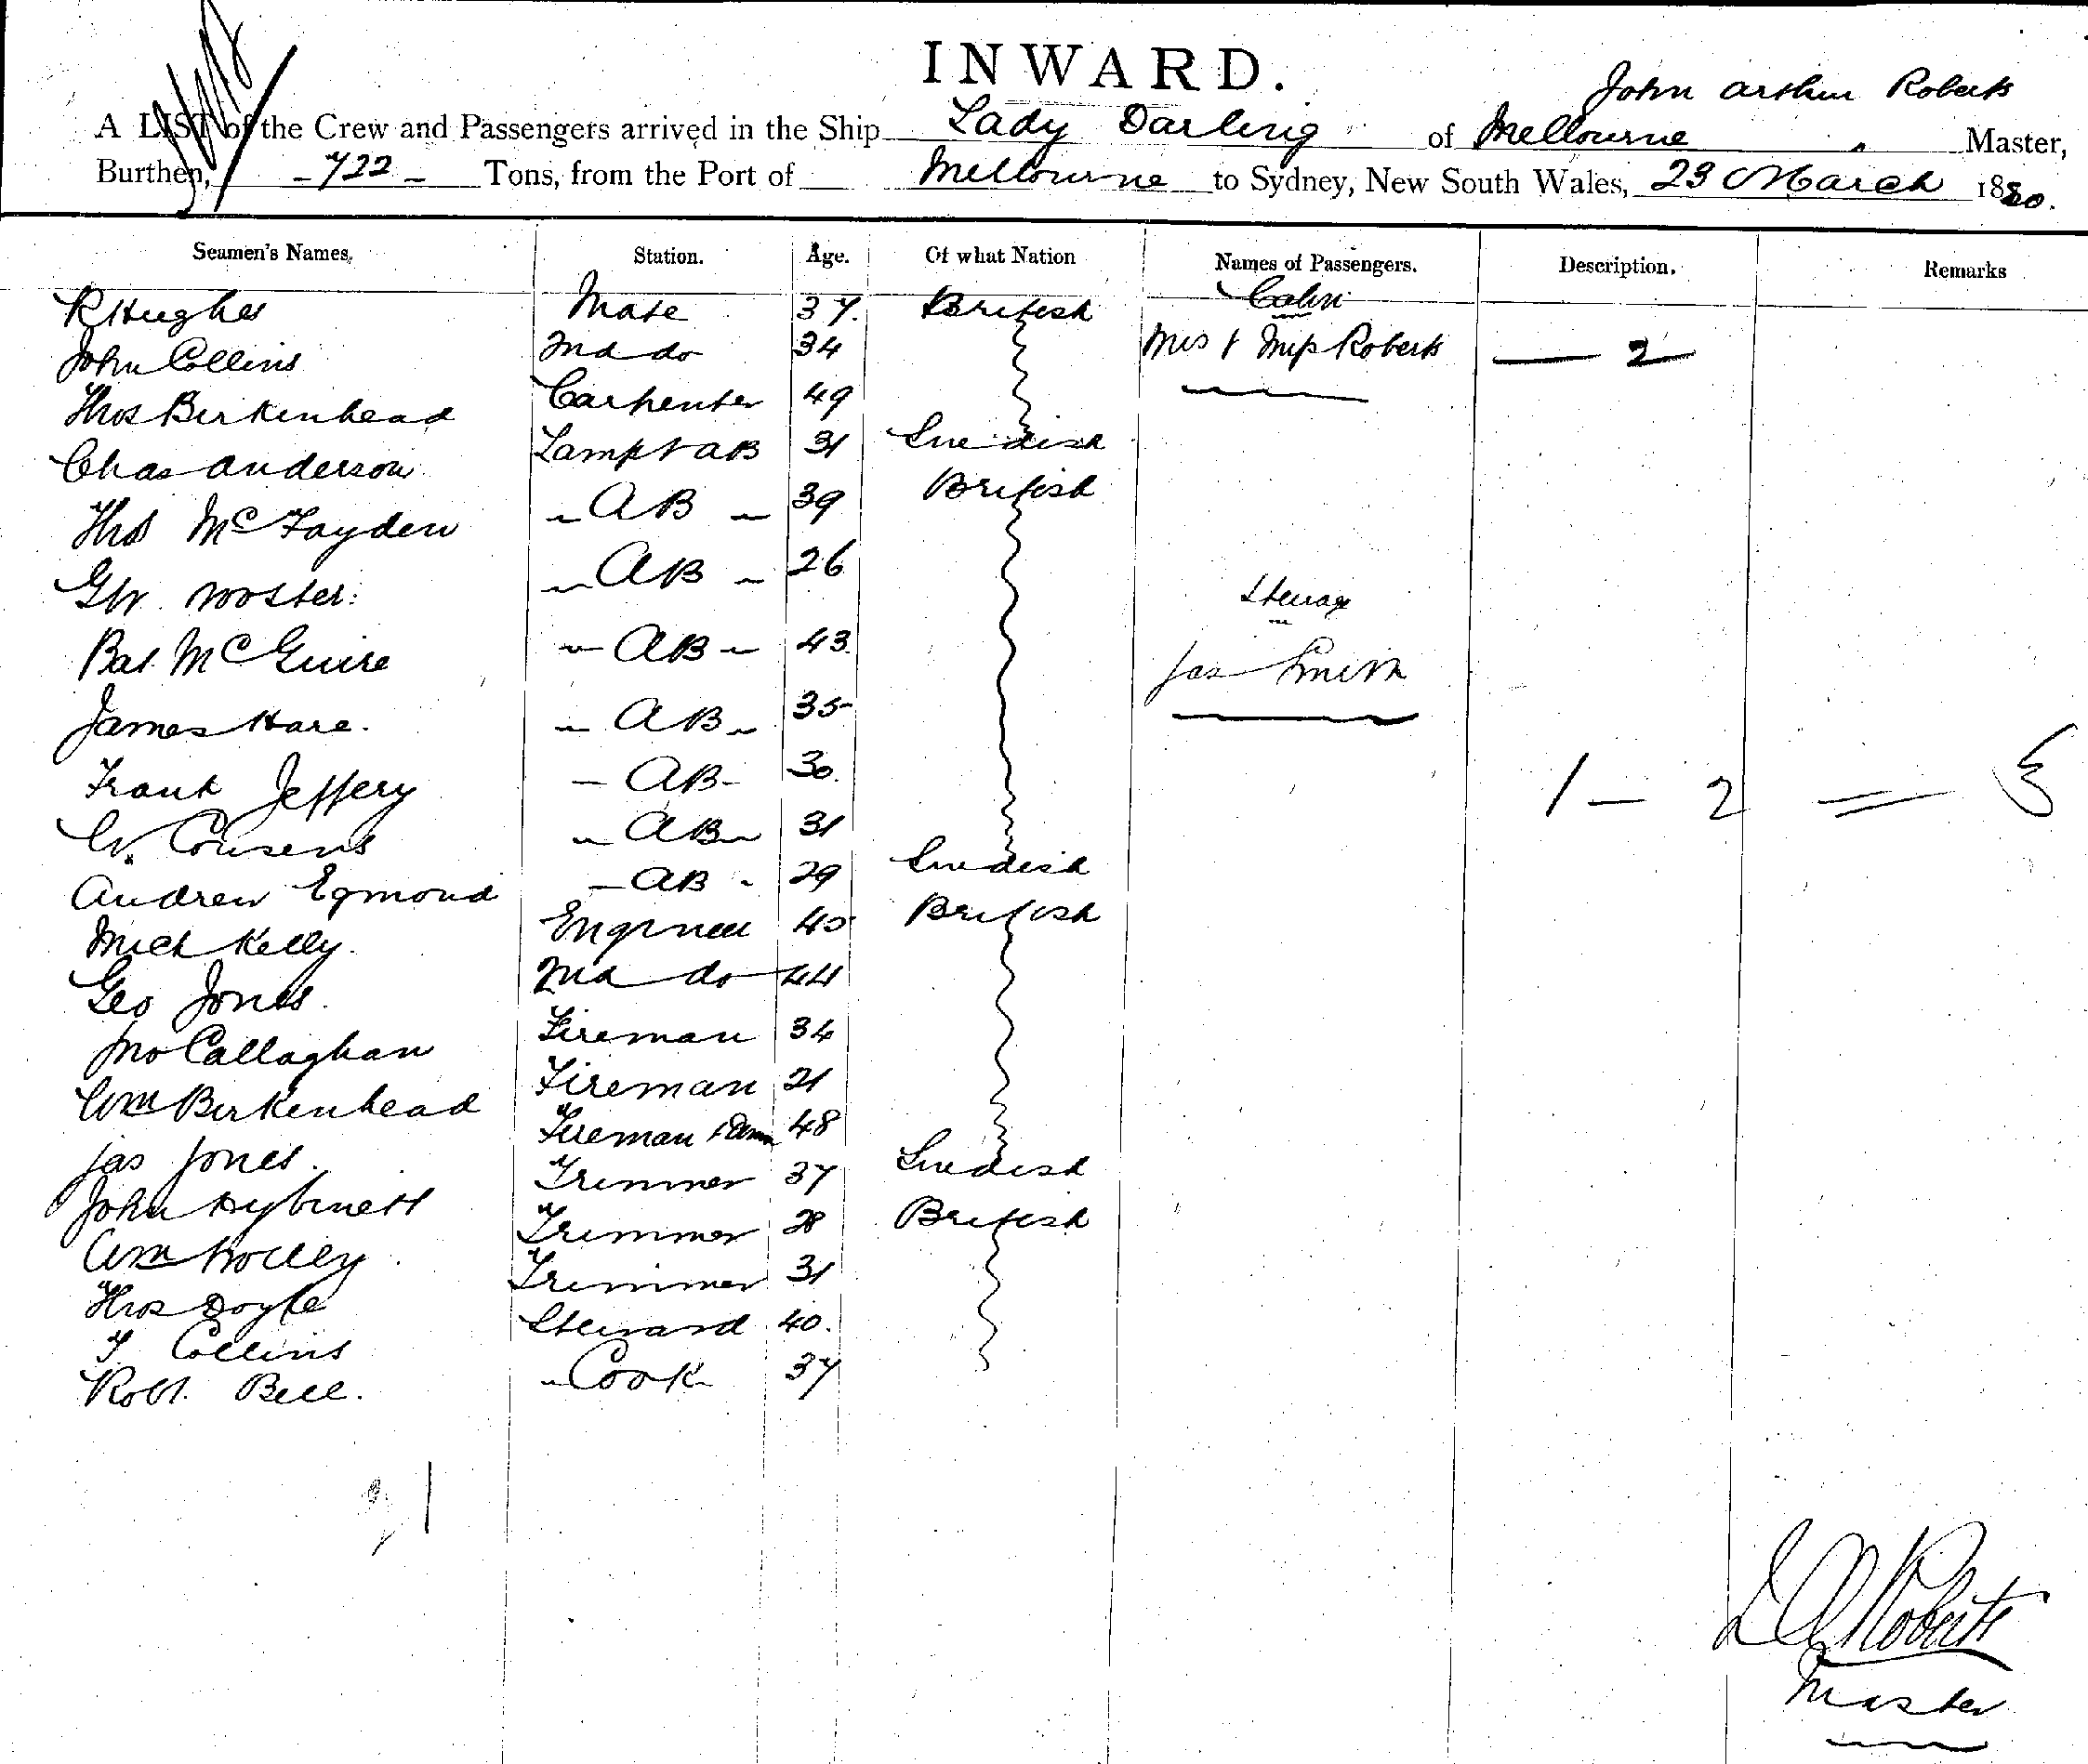 INWARD.
John Arthur Roberts
A LIST of the Crew and Passengers arrived in the Ship Lady Darling of Melbourne Master,
Burthen, - 722 - Tons, from the Port of Melbourne to Sydney, New South Wales, 23 March 1880.
Seamen's Names. Station. Age. Of what Nation Names of Passengers. Description. Remarks
R Hughes Mate 37. British Cabin
John Collins 2nd do 34 Mrs & Miss Roberts — 2
Thos Birkenhead Carpenter 49
Chas Anderson Lamps & AB 31 Swedish
Thos McFayden - AB - 39 British
GW Woster: - AB - 26 Steerage
Pat McGuire - AB - 43 Jas Smith
James Hare. - AB - 35
Frank Jeffery - AB - 30. 1 — 2 =
W. Cousens - AB - 31
Andrew Egmond - AB - 29 Swedish
Mich Kelly. Engineer 40 British
Geo Jones. 2nd do 44
Jno Callaghan Fireman 34
Wm Birkenhead Fireman 21
Jas Jones. Fireman 48
John Dybinett Trimmer 37 Swedish
Wm Trimmer 28 British
Thos Doyle Trimmer 31
Collins Steward 40.
Robt. Bell. - Cook 37
Roberts
Master